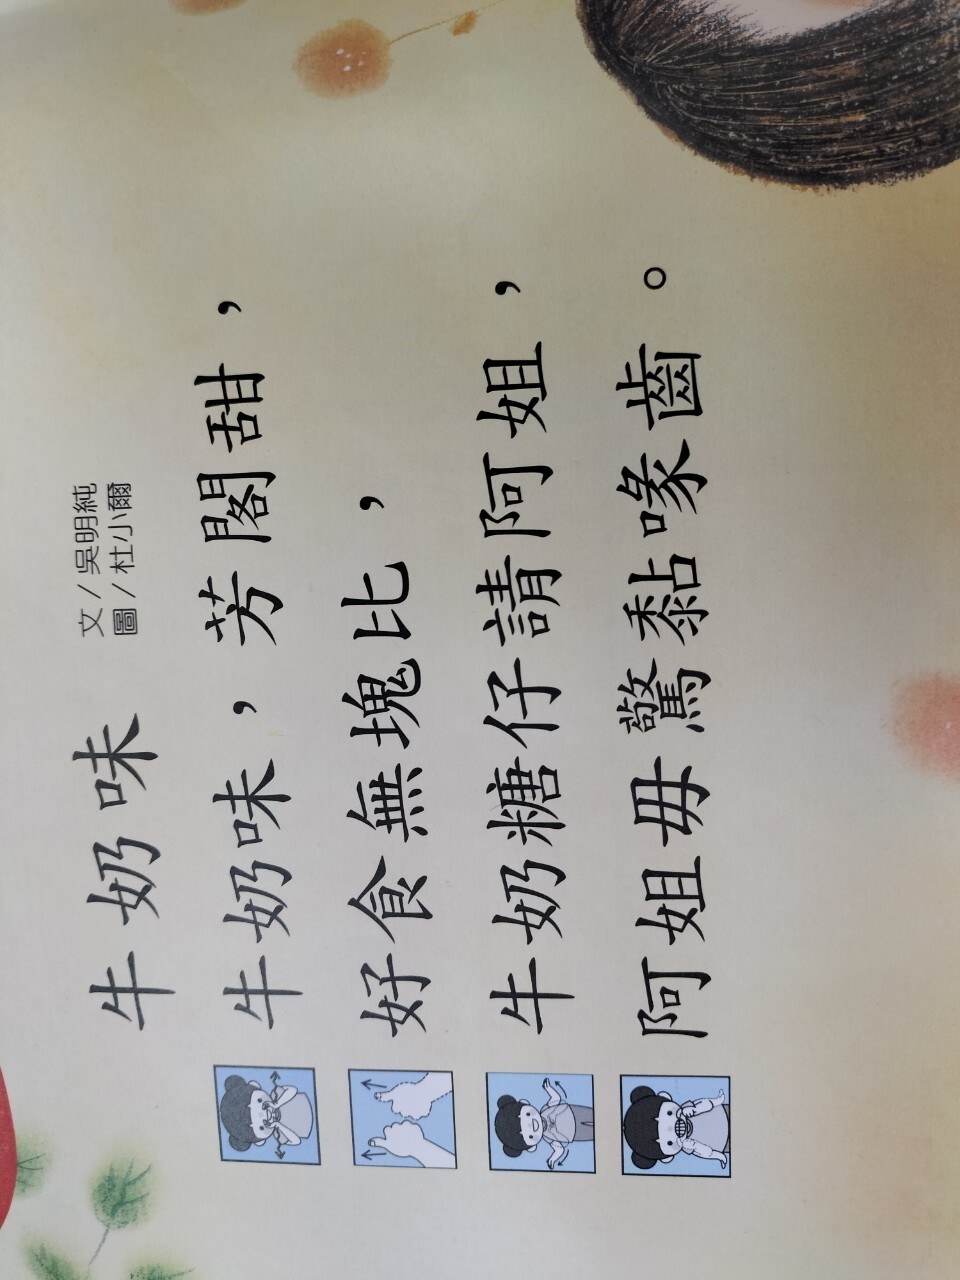 牛奶味
文／吳明純
圖／杜小爾
牛奶味，芳閣甜，
好食無塊比，
牛奶糖仔請阿姐，
阿姐毋驚黏喙齒。